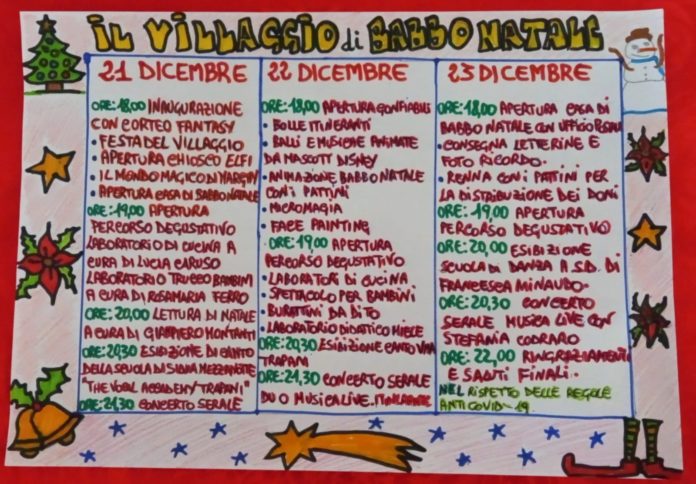 IL VILLAGGIO di BABBO NATALE
21 DICEMBRE
ORE:18,00 INAUGURAZIONE
CON CORTEO FANTASY
• FESTA DEL VILLAGGIO
• APERTURA CHIOSCO ELFI
• IL MONDO MAGICO DI
• APERTURA CASA DI BABBO NATALE
ORE:19,00 APERTURA
PERCORSO DEGUSTATIVO
LABORATORIO DI CUCINA A
CURA DI LUCIA CARUSO
LABORATORIO TRUCCO BAMBINI
A CURA DI ROSAMARIA FERRO
ORE:20,00 LETTURA DI NATALE
A CURA DI GIAMPIERO MONTANTI
ORE:20,30 ESIBIZIONE DI CANTO
DELLA SCUOLA DI SILVIA MEZZANOTTE
"THE VOCAL ACCADEMY TRAPANI"
ORE:21,30 CONCERTO SERALE
22 DICEMBRE
ORE:18,00 APERTURA GONFIABILI
• BOLLE ITINERANTI
• BALLI E MUSICHE ANIMATE
DA MASCOTT DISNEY
• ANIMAZIONE BABBO NATALE
CON I PATTINI
• MICROMAGIA
• FACE PAINTING
ORE:19,00 APERTURA
PERCORSO DEGUSTATIVO
• LABORATORI DI CUCINA
• SPETTACOLO PER BAMBINI
• BURATTINI DA DITO
• LABORATORIO DIDATTICO MIELE
ORE:20,30 ESIBIZIONE CANTO
TRAPANI
ORE:21,30 CONCERTO SERALE
DUO MUSICA LIVE. ITINERANTE
23 DICEMBRE
ORE:18,00 APERTURA CASA DI
BABBO NATALE CON UFFICIO POSTALE
• CONSEGNA LETTERINE E
FOTO RICORDO.
• RENNA CON I PATTINI PER
LA DISTRIBUZIONE DEI DONI
ORE:19,00 APERTURA
PERCORSO DEGUSTATIVO
ORE:20,00 ESIBIZIONE
SCUOLA DI DANZA A.S.D. DI
FRANCESCA MINAUDO
ORE:20,30 CONCERTO
SERALE MUSICA LIVE CON
STEFANIA CODRARO
ORE:22,00 RINGRAZIAMENTI
E SALUTI FINALI..
NEL RISPETTO DELLE REGOLE
ANTI COVID-19